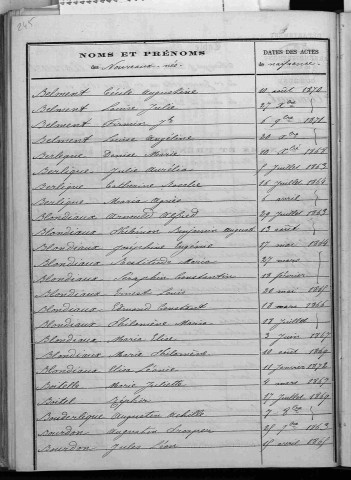 245
NOMS ET PRÉNOMS
des Nouveaux-nés
DATES DES ACTES
de naissance
Belment Cécile Augustine 10 août 1872
Belment Louise Julie 27
Belment Firmin 6 9bre 1871
Belment Louise Angéline 20
Berlique Denise Marie 10
Berlique Julie Aurélie 5 Juillet 1863
Berlique Catherine 16 Juillet 1864
Berlique Maria Agnès 6 avril
Blondiaux Alfred 29 Juillet 1863
Blondiaux Philémon Benjamin 13 août
Blondiaux Joséphine Eugénie 17 mai 1864
Blondiaux Maria 27 mars
Blondiaux Séraphin Constantin 18 février
Blondiaux Ernest Louis 20 mai
Blondiaux Edmond Constant 18 mars 1866
Blondiaux Philomène Maria 17 Juillet
Blondiaux Maria Elise 2 Juin 1867
Blondiaux Marie Philomène 10 août 1869
Blondiaux Elisa Léonie 11 Janvier 1872
Boitelle Marie Juliette 4 mars 1867
Boitel Zéphir 27 Juillet 1869
Bouderlique Augustin Achille 7
Bourdon Augustin 25 1863
Bourdon Jules Léon 15 avril